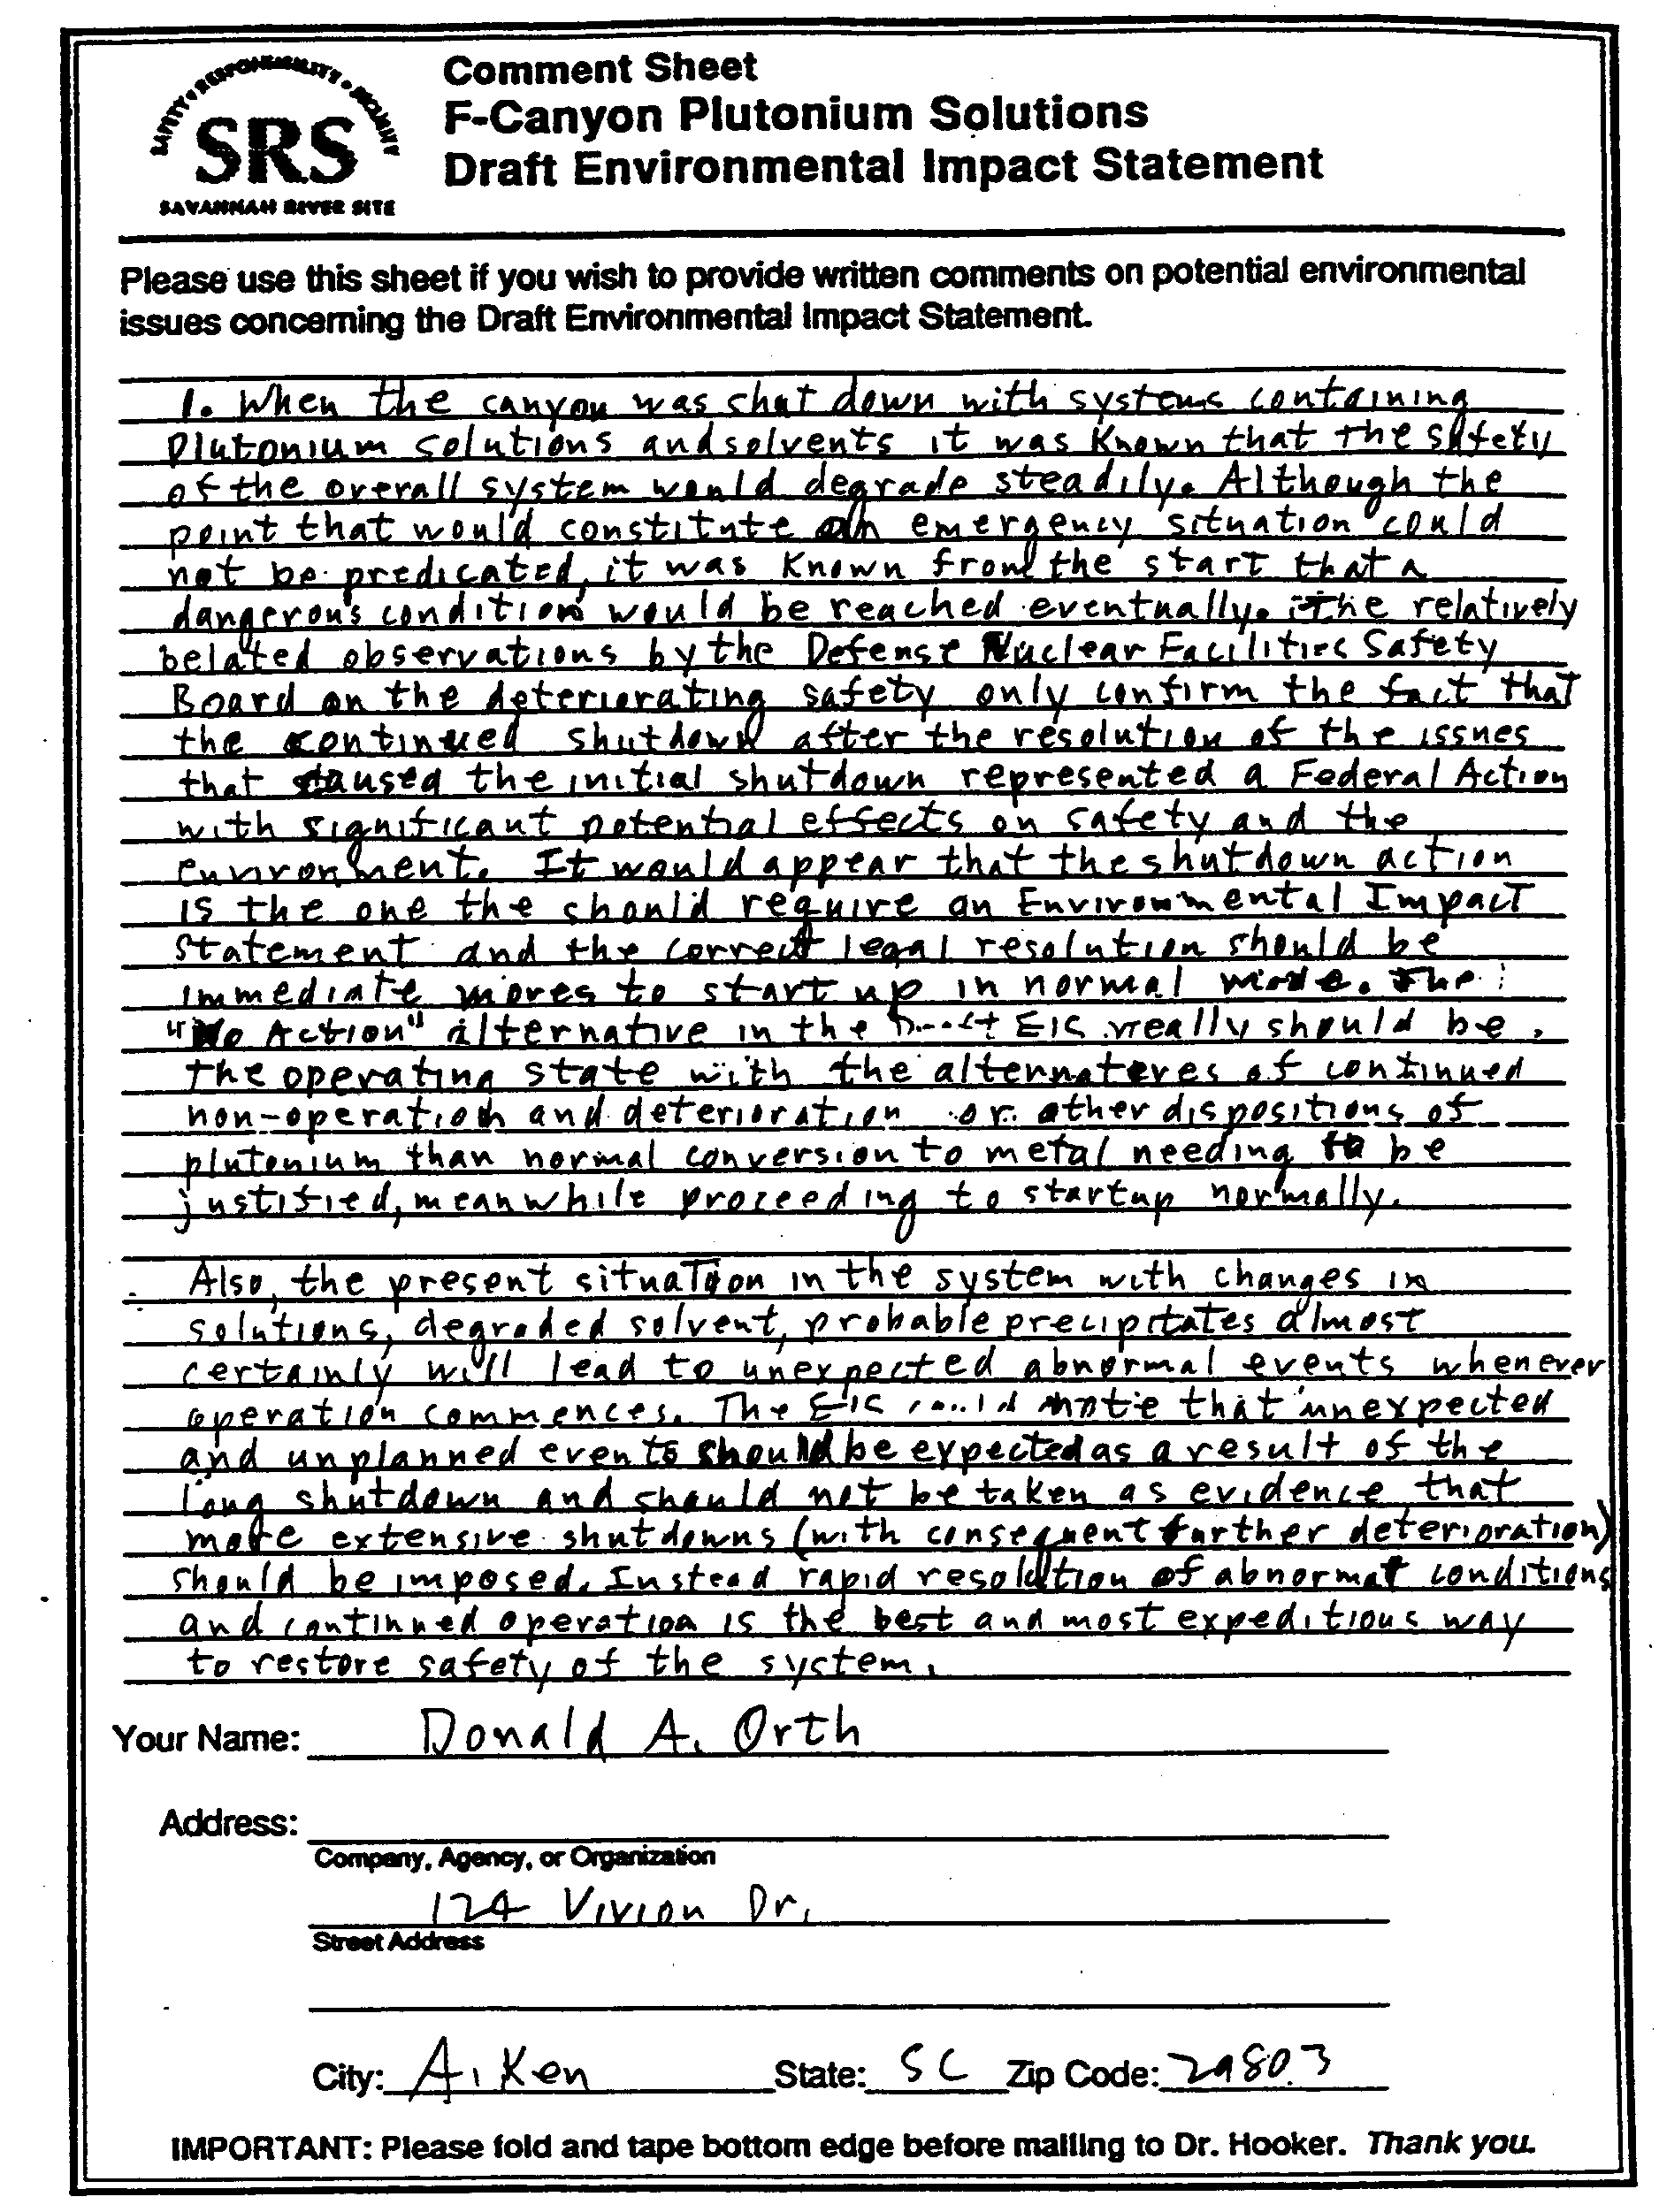 SAFETY • RESPONSIBILITY •
SRS
SAVANNAH RIVER SITE
Comment Sheet
F-Canyon Plutonium Solutions
Draft Environmental Impact Statement
Please use this sheet if you wish to provide written comments on potential environmental
issues concerning the Draft Environmental Impact Statement.
1. When the canyon was shut down with systems containing
Plutonium solutions and solvents it was known that the safety
of the overall system would degrade steadily. Although the
point that would constitute an emergency situation could
not be predicated, it was known from the start that a
dangerous condition would be reached eventually. The relatively
belated observations by the Defense Nuclear Facilities Safety
Board on the deteriorating safety only confirm the fact that
the continued shutdown after the resolution of the issues
that caused the initial shutdown represented a Federal Action
with significant potential effects on safety and the
environment. It would appear that the shutdown action
is the one the should require an Environmental Impact
Statement and the correct legal resolution should be
immediate moves to start up in normal mode. The
"No Action" alternative in the Draft EIS really should be
the operating state with the alternatives of continued
non-operation and deterioration or other dispositions of
plutonium than normal conversion to metal needing to be
justified, meanwhile proceeding to startup normally.
Also, the present situation in the system with changes in
solutions, degraded solvent, probable precipitates almost
certainly will lead to unexpected abnormal events whenever
operation commences. The EIS could note that unexpected
and unplanned events should be expected as a result of the
long shutdown and should not be taken as evidence that
more extensive shutdowns (with consequent further deterioration)
should be imposed. Instead rapid resolution of abnormal conditions
and continued operation is the best and most expeditious way
to restore safety of the system.
Your Name: Donald A. Orth
Address:
Company, Agency, or Organization
124 Vivion Dr.
Street Address
City: Aiken State: SC Zip Code: 29803
IMPORTANT: Please fold and tape bottom edge before mailing to Dr. Hooker. Thank you.